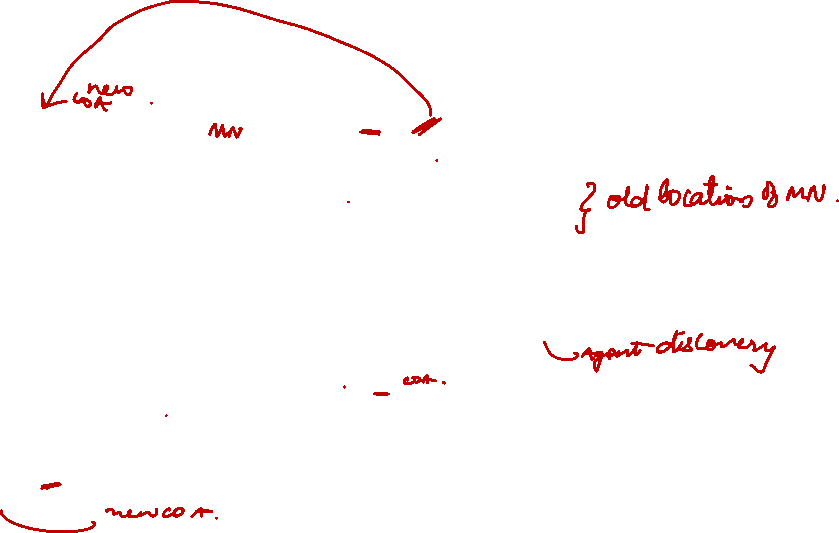 new
COA
MN
} old location of MN.
Agent discovery
COA.
new COA.